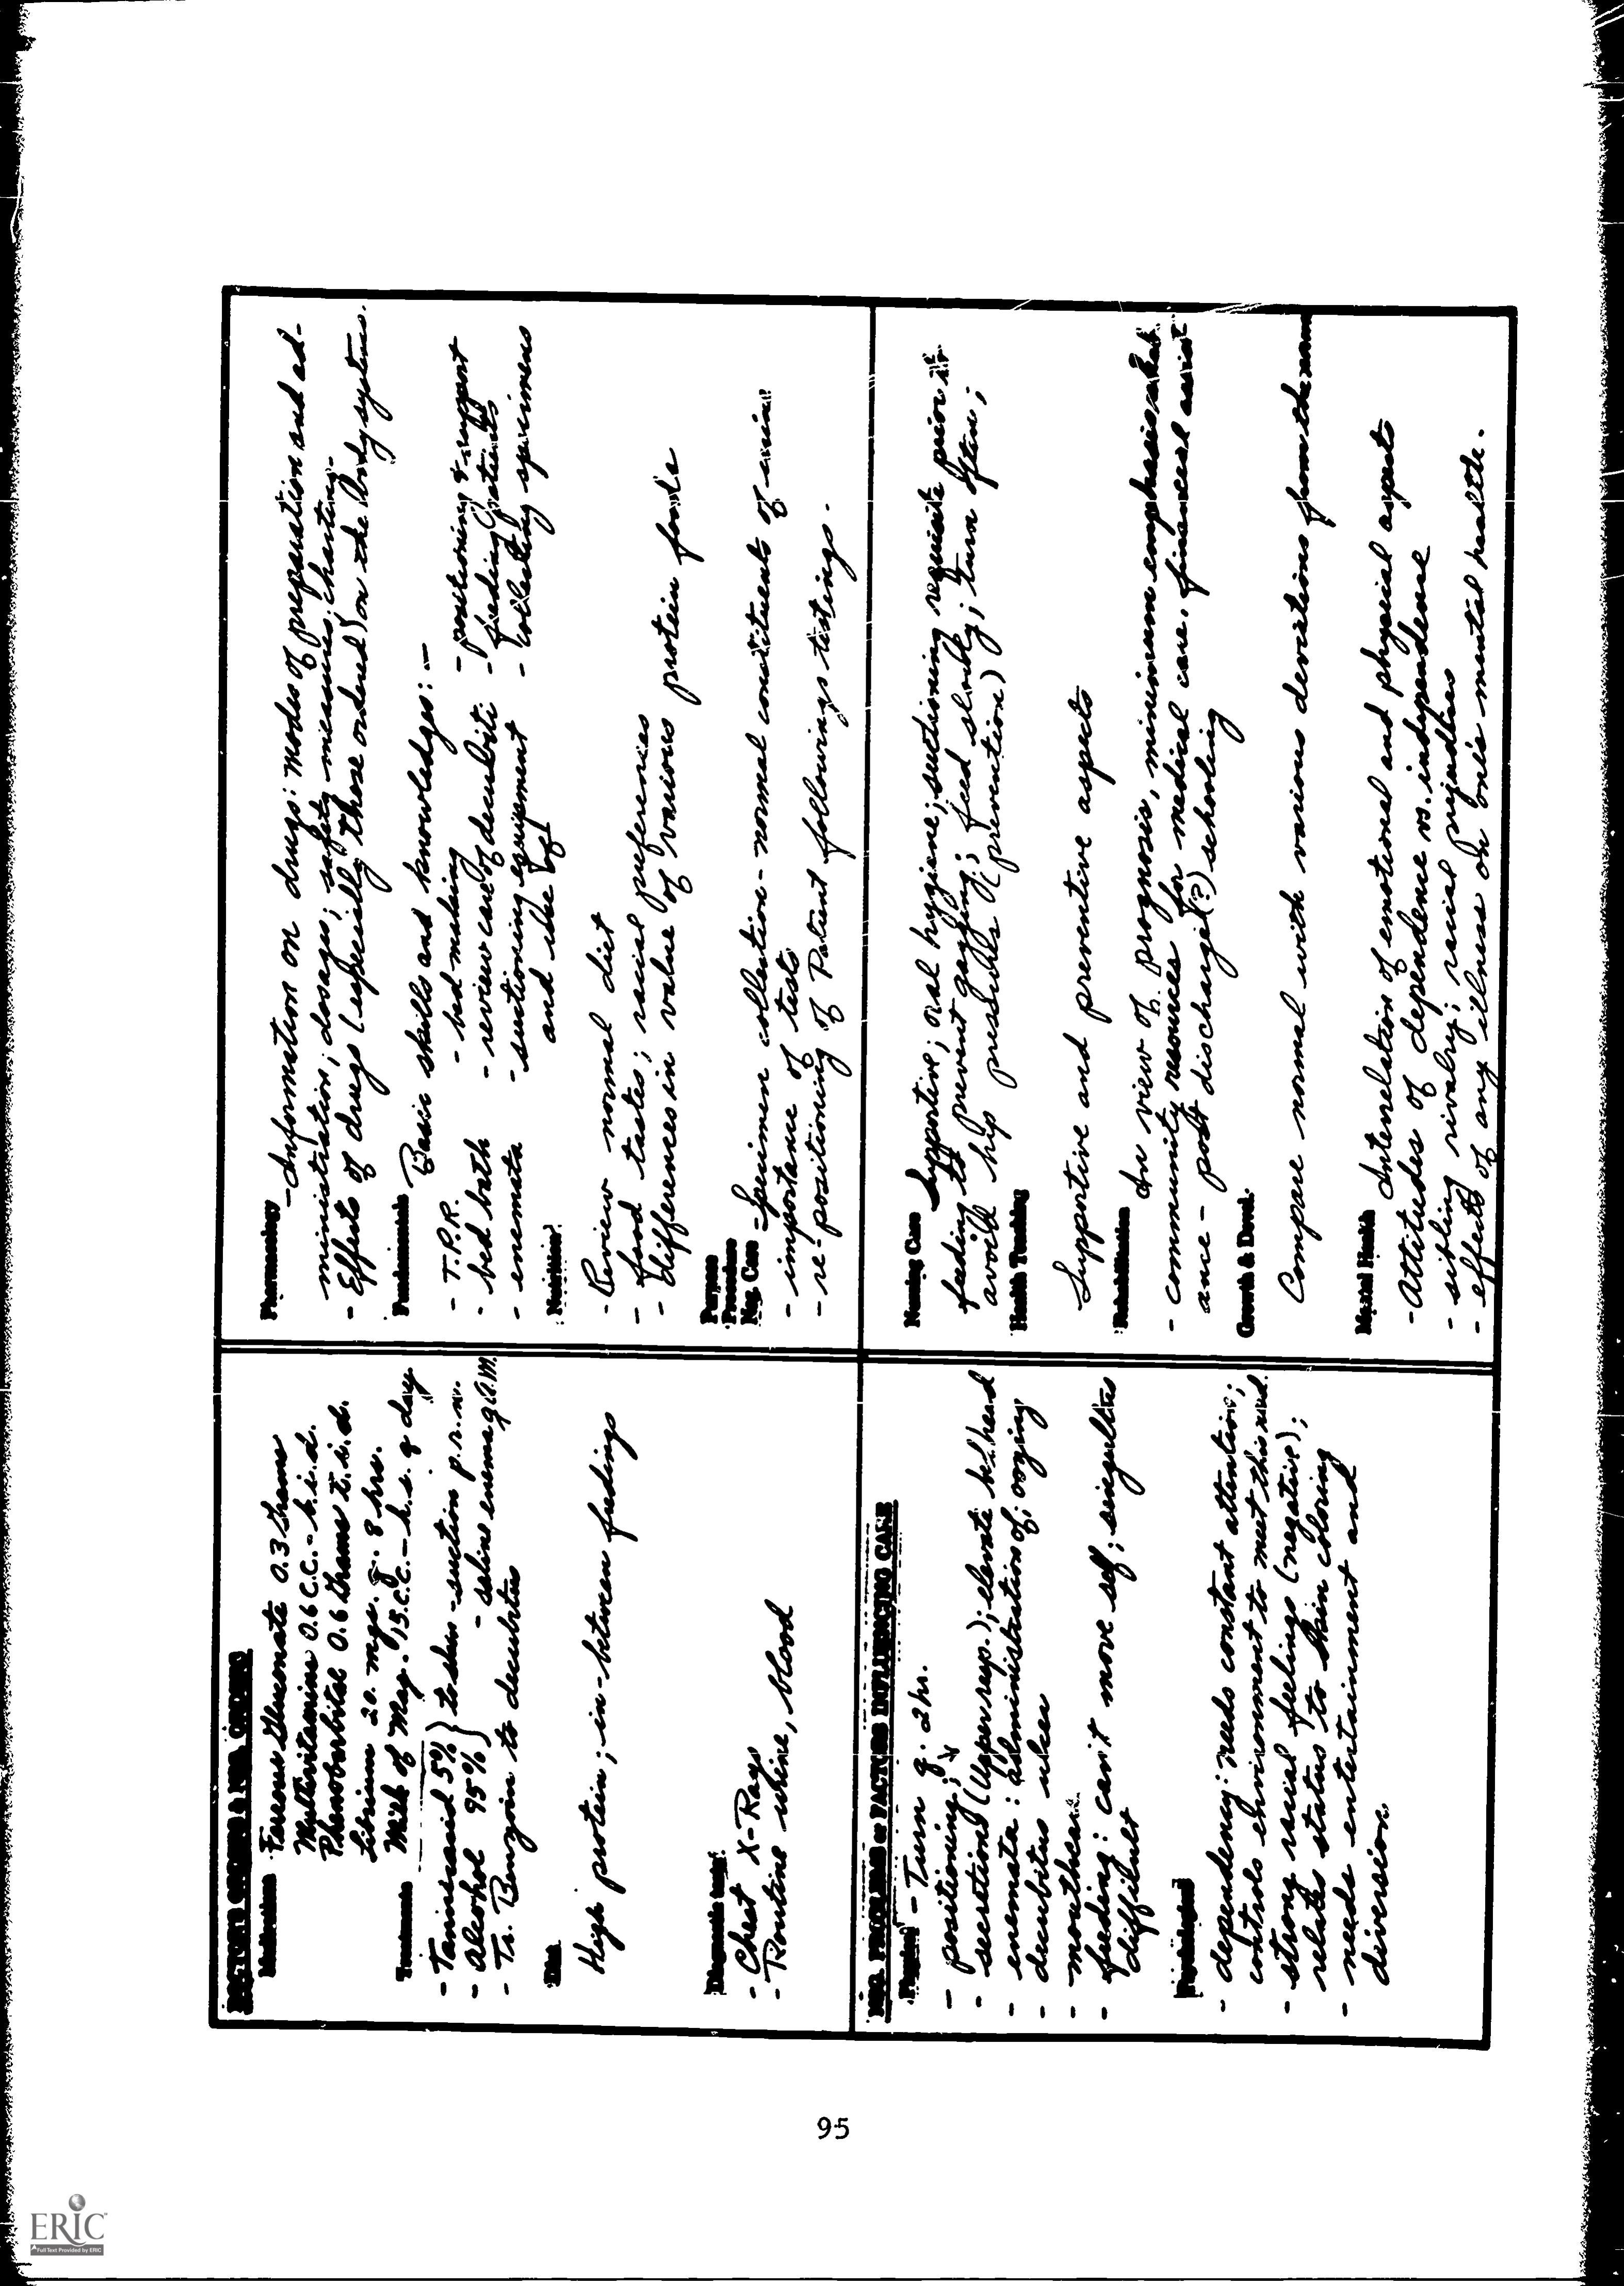 DOCTOR'S ORDERS & NSG. ORDERS
Medications Ferrous Gluconate 0.3 Grams
Multivitamins 0.6 C.C. - b.i.d.
Phenobarbital 0.6 Grams t.i.d.
Librium 20. mgs. q. 8 hrs.
Milk of Mag. 15.C.C. - h.s. q day
Treatments
- Tannic acid 5% } to skin - suction p.r.n.
- Alcohol 95% } - saline enema q A.M.
- Tr. Benzoin to decubitus
Diet
High protein; in-between feedings
Diagnostic tests:
- Chest X-Rays
- Routine urine, blood
Pharmacology
- Information on drugs: modes of preparation and ad-
ministration; dosages; safety measures; charting.
- Effects of drugs (especially those ordered) on the body systems.
Fundamentals
Basic skills and knowledges: -
- T.P.R. - bed making - positioning & support
- bed bath - review care of decubiti - feeding patients
- enemata - suctioning equipment - collecting specimens
and use of
Nutrition:
- Review normal diet
- food tastes; racial preferences
- differences in value of various protein foods
Purpose
Procedure
Nsg. Care - Specimen collection - normal constituents of urine
- importance of tests
- re-positioning of Patient following testings.
NSG. PROBLEMS or FACTORS INFLUENCING CARE
Physical - Turn q. 2 hr.
- positioning;
- secretions (Upper resp.); elevate bed head
- enemata: administration of; oozing
- decubitus ulcer
- mouthcare
- feeding: can't move self; singultus
difficult
Psychological
- dependency: needs constant attention;
controls environment to meet this need.
- strong racial feelings (negative);
relates status to skin coloring
- needs entertainment and
diversion
Nursing Care
Supportive; oral hygiene; suctioning requisite prior to
feeding to prevent gagging; feed slowly; turn often;
avoid hip pressures (prevention)
Health Teaching
Supportive and preventive aspects
Rehabilitation
In view of prognosis, minimum emphasis
- community resources for medical care, financial assist
ance - post discharge (?) schooling
Growth & Devel.
Compare normal with various deviations from the norm
Mental Health
Interrelation of emotional and physical aspects
- Attitudes of dependence vs. independence
- sibling rivalry; racial prejudices
- effects of any illness on one's mental health.
95
ERIC
Full Text Provided by ERIC